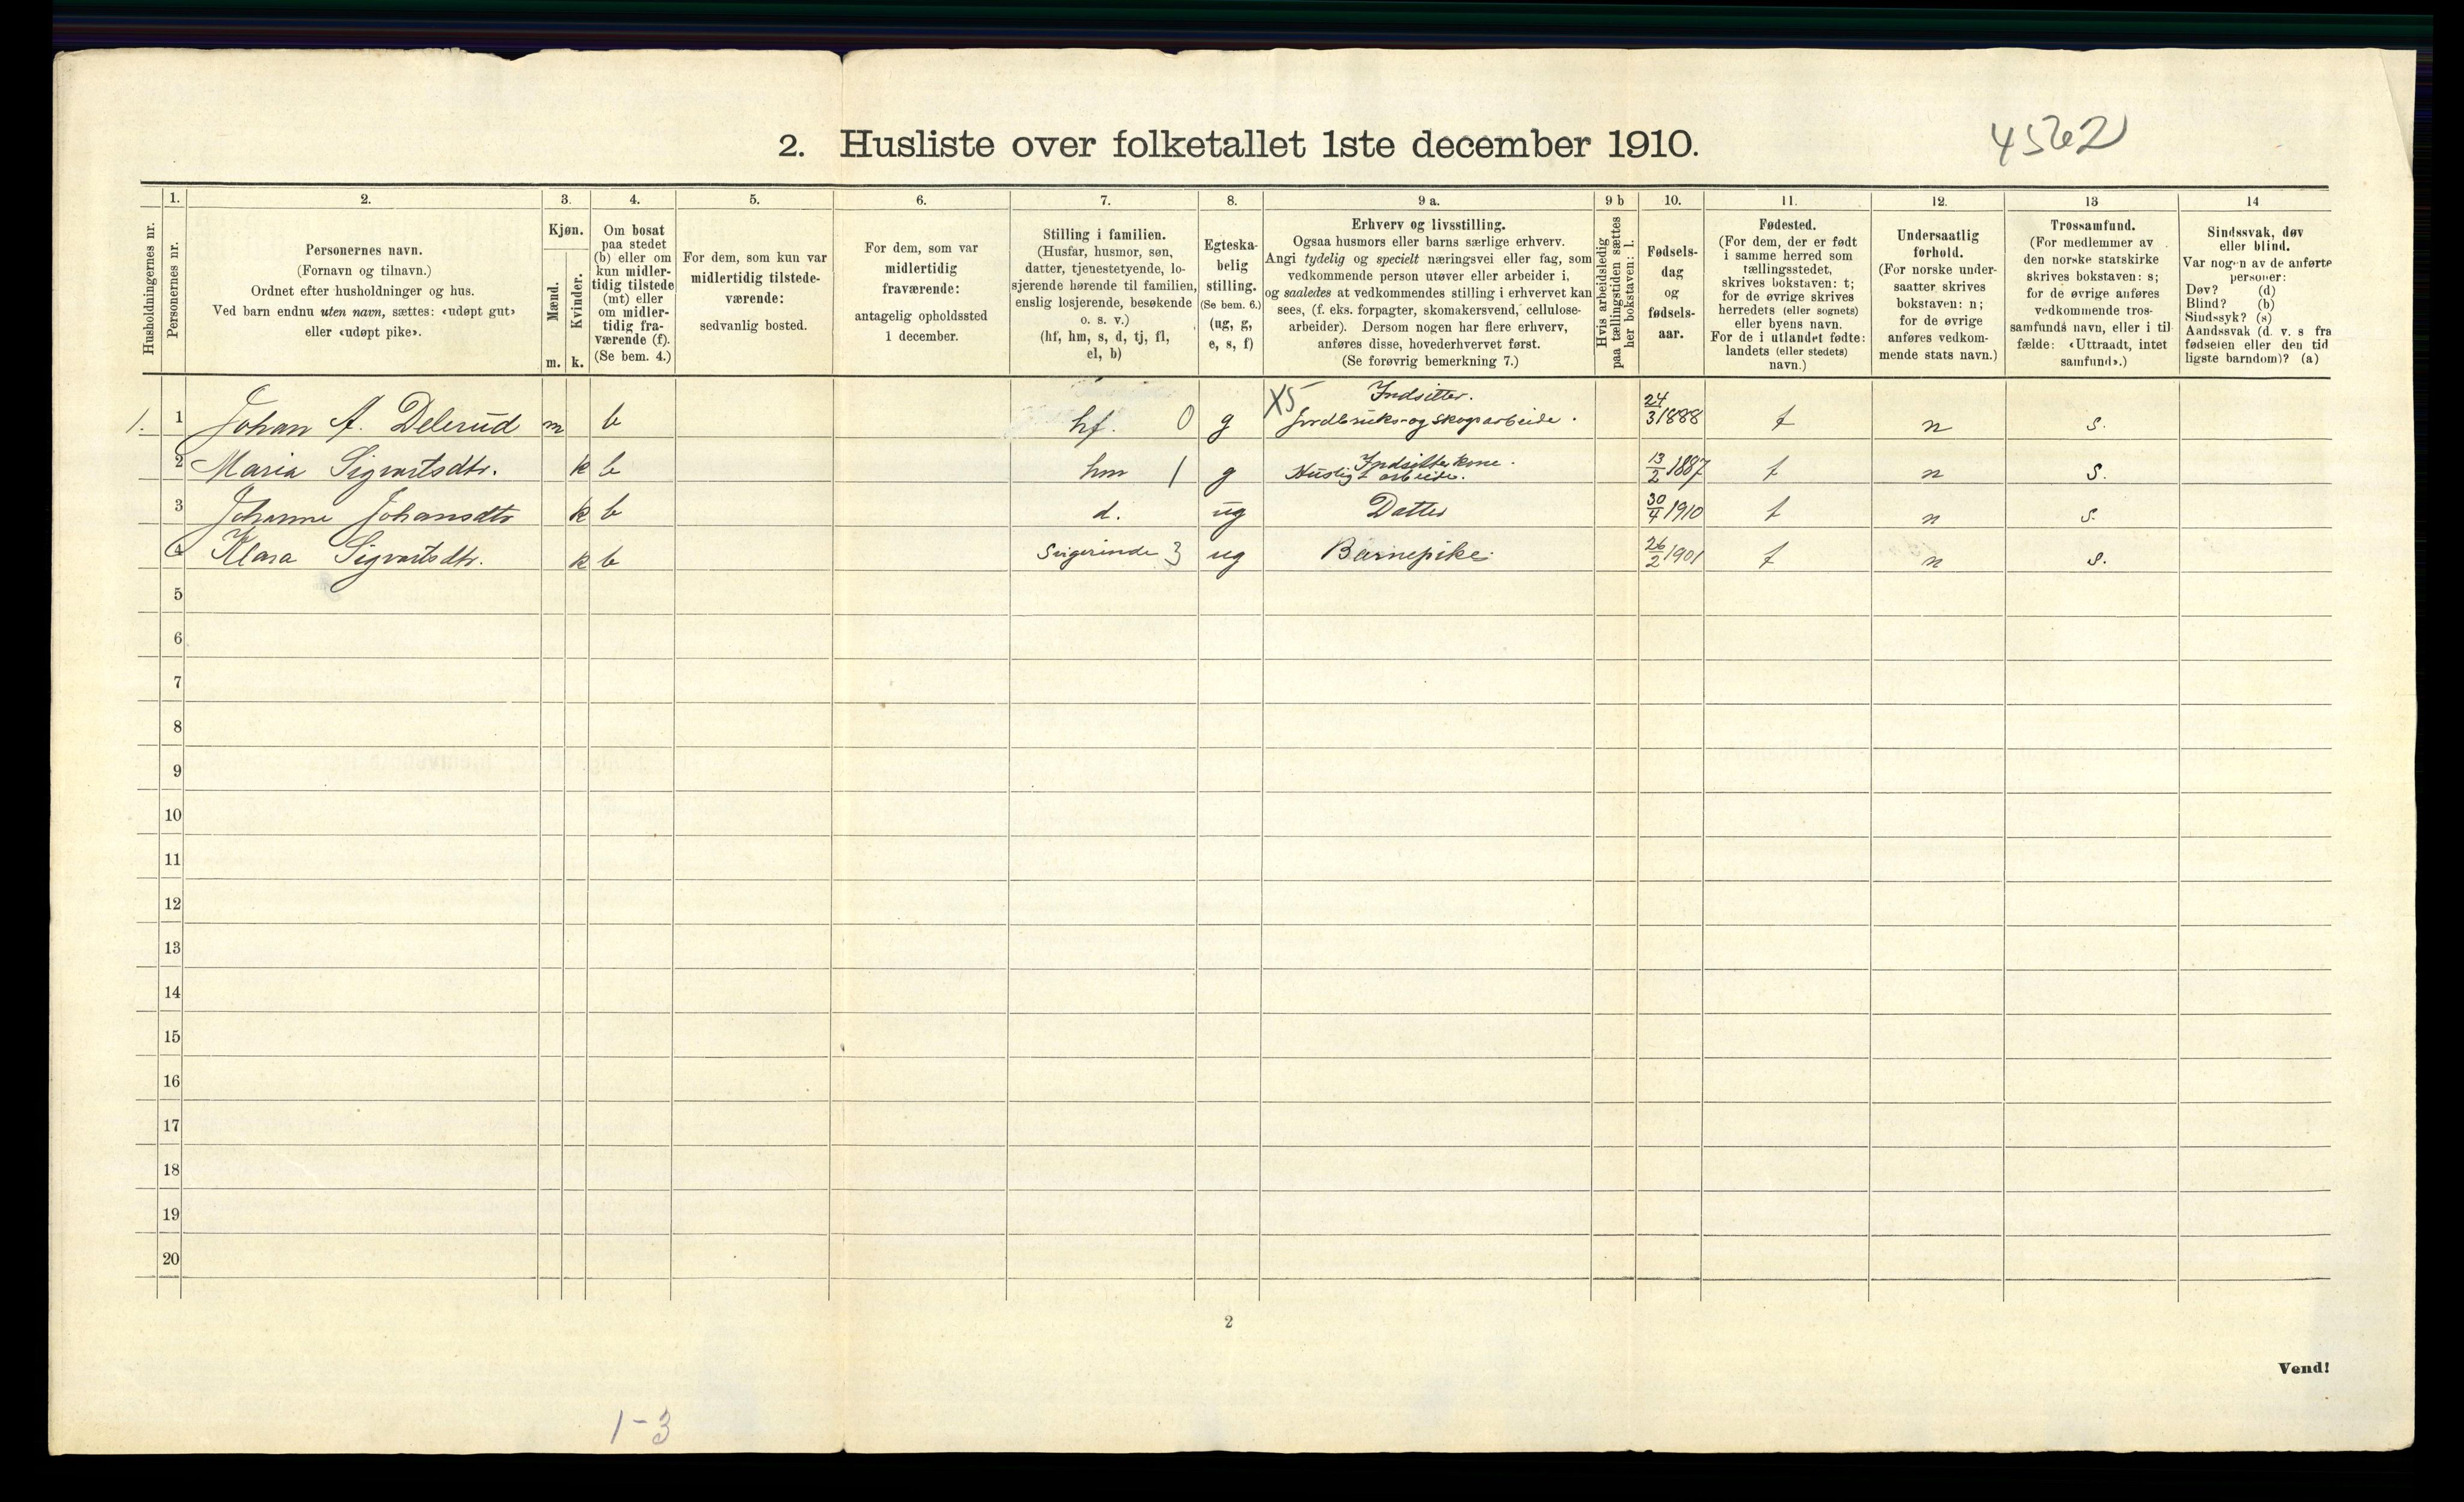 2. Husliste over folketallet 1ste december 1910.
4562
Husholdningernes nr.
1.
Personernes nr.
2.
Personernes navn.
(Fornavn og tilnavn.)
Ordnet efter husholdninger og hus.
Ved barn endnu uten navn, sættes: «udøpt gut»
eller «udøpt pike».
3.
Kjøn.
Mænd.
Kvinder.
m. k.
4.
Om bosat
paa stedet
(b) eller om
kun midler-
tidig tilstede
(mt) eller
om midler-
tidig fra-
værende (f).
(Se bem. 4.)
5.
For dem, som kun var
midlertidig tilstede-
værende:
sedvanlig bosted.
6.
For dem, som var
midlertidig
fraværende:
antagelig opholdssted
1 december.
7.
Stilling i familien.
(Husfar, husmor, søn,
datter, tjenestetyende, lo-
sjerende hørende til familien,
enslig losjerende, besøkende
o. s. v.)
(hf, hm, s, d, tj, fl,
el, b)
8.
Egteska-
belig
stilling.
(Se bem. 6.)
(ug, g,
e, s, f)
9 a.
Erhverv og livsstilling.
Ogsaa husmors eller barns særlige erhverv.
Angi tydelig og specielt næringsvei eller fag, som
vedkommende person utøver eller arbeider i,
og saaledes at vedkommendes stilling i erhvervet kan
sees, (f. eks. forpagter, skomakersvend, cellulose-
arbeider). Dersom nogen har flere erhverv,
anføres disse, hovederhvervet først.
(Se forøvrig bemerkning 7.)
9 b
Hvis arbeidsledig
paa tællingstiden sættes
her bokstaven: l.
10.
Fødsels-
dag
og
fødsels-
aar.
11.
Fødested.
(For dem, der er født
i samme herred som
tællingsstedet,
skrives bokstaven: t;
for de øvrige skrives
herredets (eller sognets)
eller byens navn.
For de i utlandet fødte:
landets (eller stedets)
navn.)
12.
Undersaatlig
forhold.
(For norske under-
saatter skrives
bokstaven: n;
for de øvrige
anføres vedkom-
mende stats navn.)
13
Trossamfund.
(For medlemmer av
den norske statskirke
skrives bokstaven: s;
for de øvrige anføres
vedkommende tros-
samfunds navn, eller i til-
fælde: «Uttraadt, intet
samfund».)
14
Sindssvak, døv
eller blind.
Var nogen av de anførte
personer:
Døv? (d)
Blind? (b)
Sindssyk? (s)
Aandssvak (d. v. s. fra
fødselen eller den tid-
ligste barndom)? (a)
1. 1 Johan A. Delerud m b hf. 0 g X5 Indsitter. Jordbruks- og skogsarbeide. 24/3 1888 t n s.
2 Maria Sigvartsdtr. k b hm 1 g Indsitterkone. Husligt arbeide. 13/2 1887 t n s.
3 Johanne Johansdtr k b d. ug Datter 30/4 1910 t n s.
4 Klara Sigvartsdtr. k b Svigerinde 3 ug Barnepike. 26/2 1901 t n s.
5
6
7
8
9
10
11
12
13
14
15
16
17
18
19
20
2
Vend!
1-3